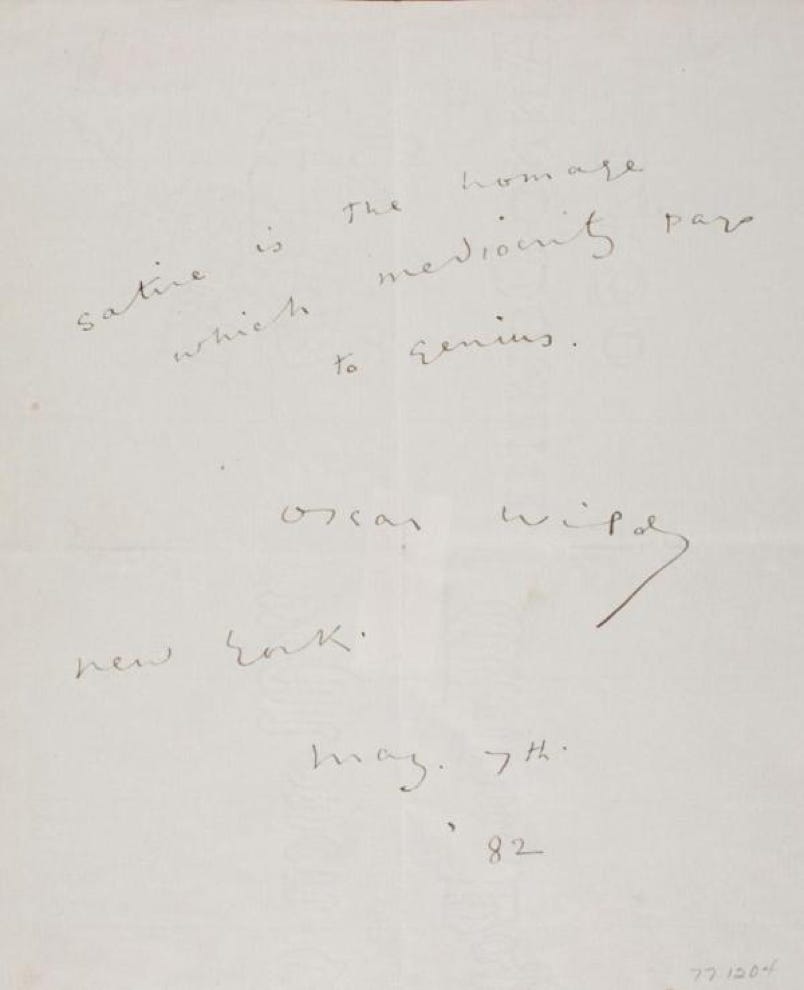 satire is the homage
which mediocrity pays
to genius.
Oscar Wilde
new York.
may. 7th.
'82
77.1204